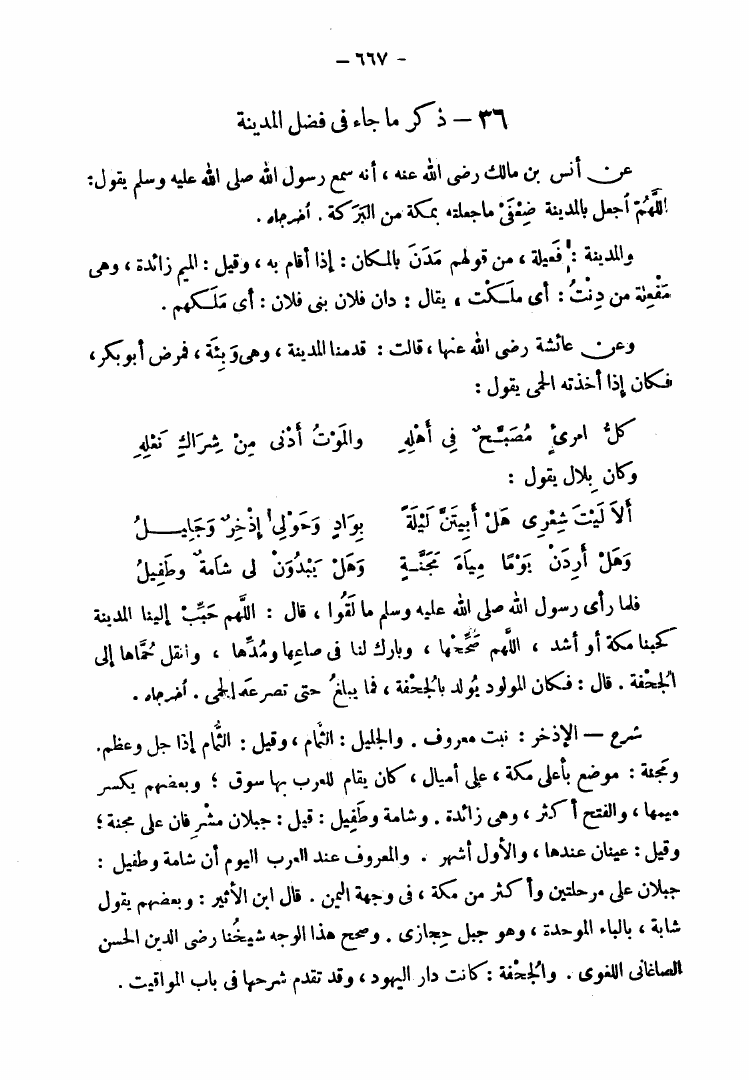 - ٦٦٧ -
٣٦ - ذكر ما جاء فى فضل المدينة
عن أنس بن مالك رضى الله عنه ، أنه سمع رسول الله صلى الله عليه وسلم يقول:
اللَّهُمّ اجعل بالمدينة ضِعْفَىْ ماجعلته بمكة من البَرَكة . أخرجاه .
والمدينة : فَعيلة ، من قولهم مَدَنَ بالمكان : إذا أقام به ، وقيل : الميم زائدة ، وهى
مَفْعِلة من دِنْتُ : أى ملَكْت ، يقال : دان فلان بنى فلان : أى مَلَكهم .
وعن عائشة رضى الله عنها ، قالت : قدمنا المدينة ، وهى وَبِئَة ، فمرض أبوبكر ،
فكان إذا أخذته الحمى يقول :
كلُّ امرئٍ مُصَبَّحٌ فِى أَهْلِهِ والمَوْتُ أَدْنى مِنْ شِرَاكِ نَعْلِهِ
وكان بِلال يقول :
أَلاَ لَيْتَ شِعْرِى هَلْ أَبِيتَنَّ لَيْلَةً بِوَادٍ وَحَوْلِى إِذْخِرٌ وَجَلِيلُ
وَهَلْ أَرِدَنْ يَوْمًا مِيَاهَ مَجَنَّةٍ وَهَلْ يَبْدُوَنْ لى شامةٌ وطَفِيلُ
فلما رأى رسول الله صلى الله عليه وسلم ما لَقُوا ، قال : اللَّهم حَبِّبْ إلينا المدينة
كحبنا مكة أو أشد ، اللَّهم صَحِّحْها ، وبارك لنا فى صاعِها ومُدِّها ، وانقل حُمَّاها إلى
الجُحْفة . قال : فكان المولود يُولد بالجُحْفة ، فما يبلغُ حتى تصرعَه الحمى . أخرجاه .
شرح - الإذخر : نبت معروف . والجليل : الثمام ، وقيل : الثُّمام إذا جل وعظم.
ومجنة : موضع بأعلى مكة ، على أميال ، كان يقام للعرب بها سوق ؛ وبعضهم يكسر
ميمها ، والفتح أكثر ، وهى زائدة . وشامة وطَفِيل : قيل : جبلان مشْرِفان على مجنة ؛
وقيل : عينان عندها ، والأول أشهر . والمعروف عند العرب اليوم أن شامة وطفيل :
جبلان على مرحلتين وأكثر من مكة ، فى وجهة اليمن . قال ابن الأثير : وبعضهم يقول
شابة ، بالباء الموحدة ، وهو جبل حِجازى . وصحح هذا الوجه شيخُنا رضى الدين الحسن
الصاغانى اللغوى . والجُحْفة : كانت دار اليهود ، وقد تقدم شرحها فى باب المواقيت .